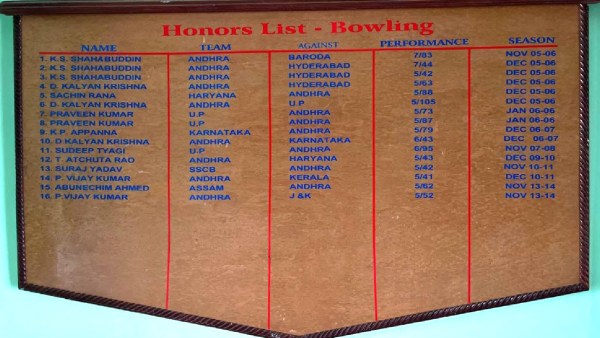 Honors List - Bowling
NAME TEAM AGAINST PERFORMANCE SEASON
1. K.S. SHAHABUDDIN ANDHRA BARODA 7/83 NOV 05-06
2. K.S. SHAHABUDDIN ANDHRA HYDERABAD 7/44 DEC 05-06
3. K.S. SHAHABUDDIN ANDHRA HYDERABAD 5/42 DEC 05-06
4. D. KALYAN KRISHNA ANDHRA HYDERABAD 5/63 DEC 05-06
5. SACHIN RANA HARYANA ANDHRA 5/88 DEC 05-06
6. D. KALYAN KRISHNA ANDHRA U.P 5/105 DEC 05-06
7. PRAVEEN KUMAR U.P ANDHRA 5/73 JAN 06-06
8. PRAVEEN KUMAR U.P ANDHRA 5/87 JAN 06-06
9. K.P. APPANNA KARNATAKA ANDHRA 5/79 DEC 06-07
10. D.KALYAN KRISHNA ANDHRA KARNATAKA 6/43 DEC 06-07
11. SUDEEP TYAGI U.P ANDHRA 6/95 NOV 07-08
12. T. ATCHUTA RAO ANDHRA HARYANA 5/43 DEC 09-10
13. SURAJ YADAV SSCB ANDHRA 5/42 NOV 10-11
14. P. VIJAY KUMAR ANDHRA KERALA 5/41 DEC 10-11
15. ABUNECHIM AHMED ASSAM ANDHRA 5/62 NOV 13-14
16. P VIJAY KUMAR ANDHRA J&K 5/52 NOV 13-14